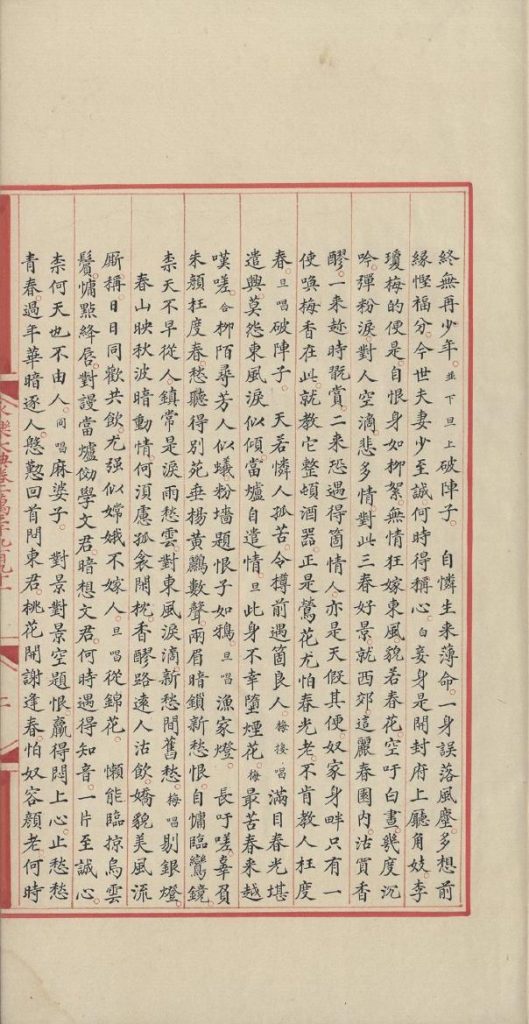 終無再少年並下旦上破陣子　自憐生來薄命一身誤落風塵多想前
緣慳福分今世夫妻少至誠何時得稱心白妾身是開封府上廳角妓李
瓊梅的便是自恨身如柳絮無情狂嫁東風貌若春花空吁白晝幾度沉
吟彈粉淚對人空滴悲多情對此三春好景就西郊這麗春園內沽賣香
醪一來趂時翫賞二來恐遇得箇情人亦是天假其便奴家身畔只有一
使喚梅香在此就教它整頓酒器正是鶯花尤怕春光老不肯教人枉度
春旦唱破陣子　天若憐人孤苦令樽前遇箇良人梅接唱滿目春光堪
遣興莫怨東風淚似傾當爐自遣情旦此身不幸墮煙花梅最苦春來越
嘆嗟合柳陌尋芳人似蟻粉墻題恨子如鴉旦唱漁家燈　長吁嗟辜負
朱顏枉度春愁聽得別苑垂楊黃鸝數聲兩眉暗鎖新愁恨自慵臨鸞鏡
柰天不早從人鎮常是淚雨愁雲對東風淚滴新愁間舊愁梅唱剔銀燈
春山映秋波暗動情何須慮孤衾閑枕香醪路遠人沽飲嬌貌美風流
厮稱日日同歡共飲尤强似嫦娥不嫁人旦唱從錦花　懶能臨掠烏雲
鬢慵點絳唇對謾當爐傚學文君暗想文君何時遇得知音一片至誠心
柰何天也不由人同唱麻婆子　對景對景空題恨贏得悶上心止愁愁
青春過年華暗逐人慇懃回首問東君桃花開謝逢春怕奴容顏老何時